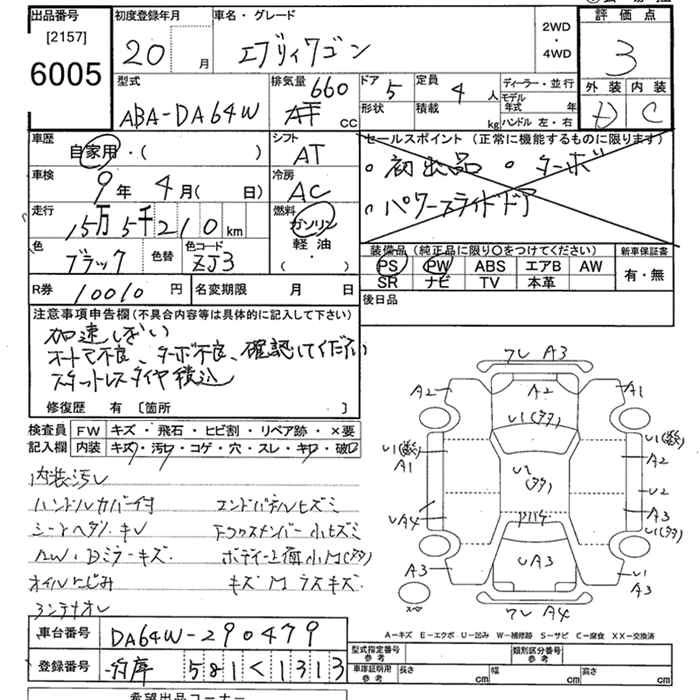 出品番号
[2157]
6005
初度登録年月
20 月
車名・グレード
エブリィワゴン
2WD
・
4WD
評価点
3
外装 内装
D C
型式
ABA-DA64W
排気量
660
cc
ドア 5
形状
定員 4 人
積載 kg
ディーラー・並行
モデル
年式 年
ハンドル 左・右
車歴
自家用・( )
シフト
AT
車検
9年 4月( 日)
冷房
AC
走行
15万5千210 km
燃料
ガソリン
軽油
( ・ )
色
ブラック
色替
色コード
ZJ3
セールスポイント (正常に機能するものに限ります)
初出品 ターボ
パワースライドドア
装備品 (純正品に限り○をつけてください)
PS PW ABS エアB AW
SR ナビ TV 本革
新車保証書
有・無
R券 10010 円
名変期限 月 日
後日品
注意事項申告欄(不具合内容等は具体的に記入して下さい)
加速しない
オートマ不良、ターボ不良、確認してください
スタットレスタイヤ積込
修復歴 有 [箇所 ]
検査員
記入欄
FW キズ・飛石・ヒビ割・リペア跡・×要
内装 キズ・汚・コゲ・穴・スレ・キレ・破レ
内装汚レ
ハンドルカバー付 エンドパネルヒズミ
シートヘタリ・キレ Fクロスメンバー小ヒズミ
AW・Dミラーキズ ボディー上面小M(多)
オイルにじみ キズMラスキズ
コンデナオレ
ワレ A3
A2 A2 A1
U1(多)
U1(多) A1
A2
U1(多)
U2
UA4
A3
U1(多)
UA3
A3
U1 A3
スペア
ワレ A4
A-キズ E-エクボ U-凹み W-補修跡 S-サビ C-腐食 XX-交換済
車台番号 DA64W-290479
登録番号 581 く 1313
型式指定番号
参考
類別区分番号
参考
車庫証明用
参考
長さ cm 幅 cm 高さ cm
希望出品コーナー